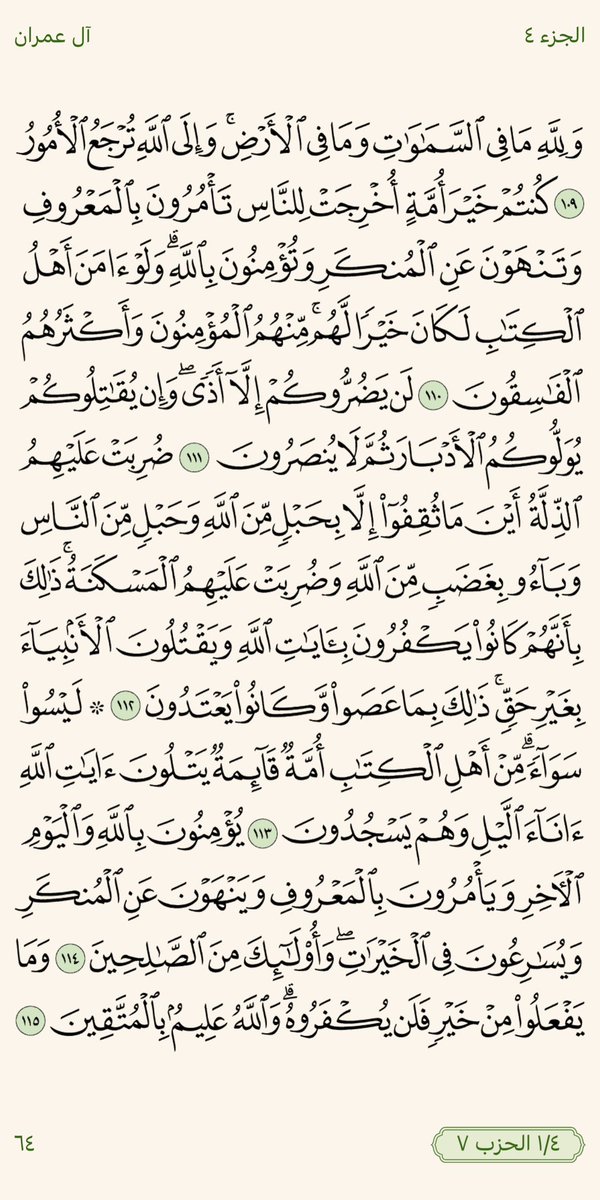 الجزء ٤
آل عمران
وَلِلَّهِ مَا فِي ٱلسَّمَٰوَٰتِ وَمَا فِي ٱلۡأَرۡضِۚ وَإِلَى ٱللَّهِ تُرۡجَعُ ٱلۡأُمُورُ
١٠٩ كُنتُمۡ خَيۡرَ أُمَّةٍ أُخۡرِجَتۡ لِلنَّاسِ تَأۡمُرُونَ بِٱلۡمَعۡرُوفِ
وَتَنۡهَوۡنَ عَنِ ٱلۡمُنكَرِ وَتُؤۡمِنُونَ بِٱللَّهِۗ وَلَوۡ ءَامَنَ أَهۡلُ
ٱلۡكِتَٰبِ لَكَانَ خَيۡرٗا لَّهُمۚ مِّنۡهُمُ ٱلۡمُؤۡمِنُونَ وَأَكۡثَرُهُمُ
ٱلۡفَٰسِقُونَ ١١٠ لَن يَضُرُّوكُمۡ إِلَّآ أَذٗىۖ وَإِن يُقَٰتِلُوكُمۡ
يُوَلُّوكُمُ ٱلۡأَدۡبَارَ ثُمَّ لَا يُنصَرُونَ ١١١ ضُرِبَتۡ عَلَيۡهِمُ
ٱلذِّلَّةُ أَيۡنَ مَا ثُقِفُوٓاْ إِلَّا بِحَبۡلٖ مِّنَ ٱللَّهِ وَحَبۡلٖ مِّنَ ٱلنَّاسِ
وَبَآءُو بِغَضَبٖ مِّنَ ٱللَّهِ وَضُرِبَتۡ عَلَيۡهِمُ ٱلۡمَسۡكَنَةُۚ ذَٰلِكَ
بِأَنَّهُمۡ كَانُواْ يَكۡفُرُونَ بِـَٔايَٰتِ ٱللَّهِ وَيَقۡتُلُونَ ٱلۡأَنۢبِيَآءَ
بِغَيۡرِ حَقّٖۚ ذَٰلِكَ بِمَا عَصَواْ وَّكَانُواْ يَعۡتَدُونَ ١١٢ ۞ لَيۡسُواْ
سَوَآءٗۗ مِّنۡ أَهۡلِ ٱلۡكِتَٰبِ أُمَّةٞ قَآئِمَةٞ يَتۡلُونَ ءَايَٰتِ ٱللَّهِ
ءَانَآءَ ٱلَّيۡلِ وَهُمۡ يَسۡجُدُونَ ١١٣ يُؤۡمِنُونَ بِٱللَّهِ وَٱلۡيَوۡمِ
ٱلۡأٓخِرِ وَيَأۡمُرُونَ بِٱلۡمَعۡرُوفِ وَيَنۡهَوۡنَ عَنِ ٱلۡمُنكَرِ
وَيُسَٰرِعُونَ فِي ٱلۡخَيۡرَٰتِۖ وَأُوْلَٰٓئِكَ مِنَ ٱلصَّٰلِحِينَ ١١٤ وَمَا
يَفۡعَلُواْ مِنۡ خَيۡرٖ فَلَن يُكۡفَرُوهُۗ وَٱللَّهُ عَلِيمُۢ بِٱلۡمُتَّقِينَ ١١٥
١/٤ الحزب ٧
٦٤